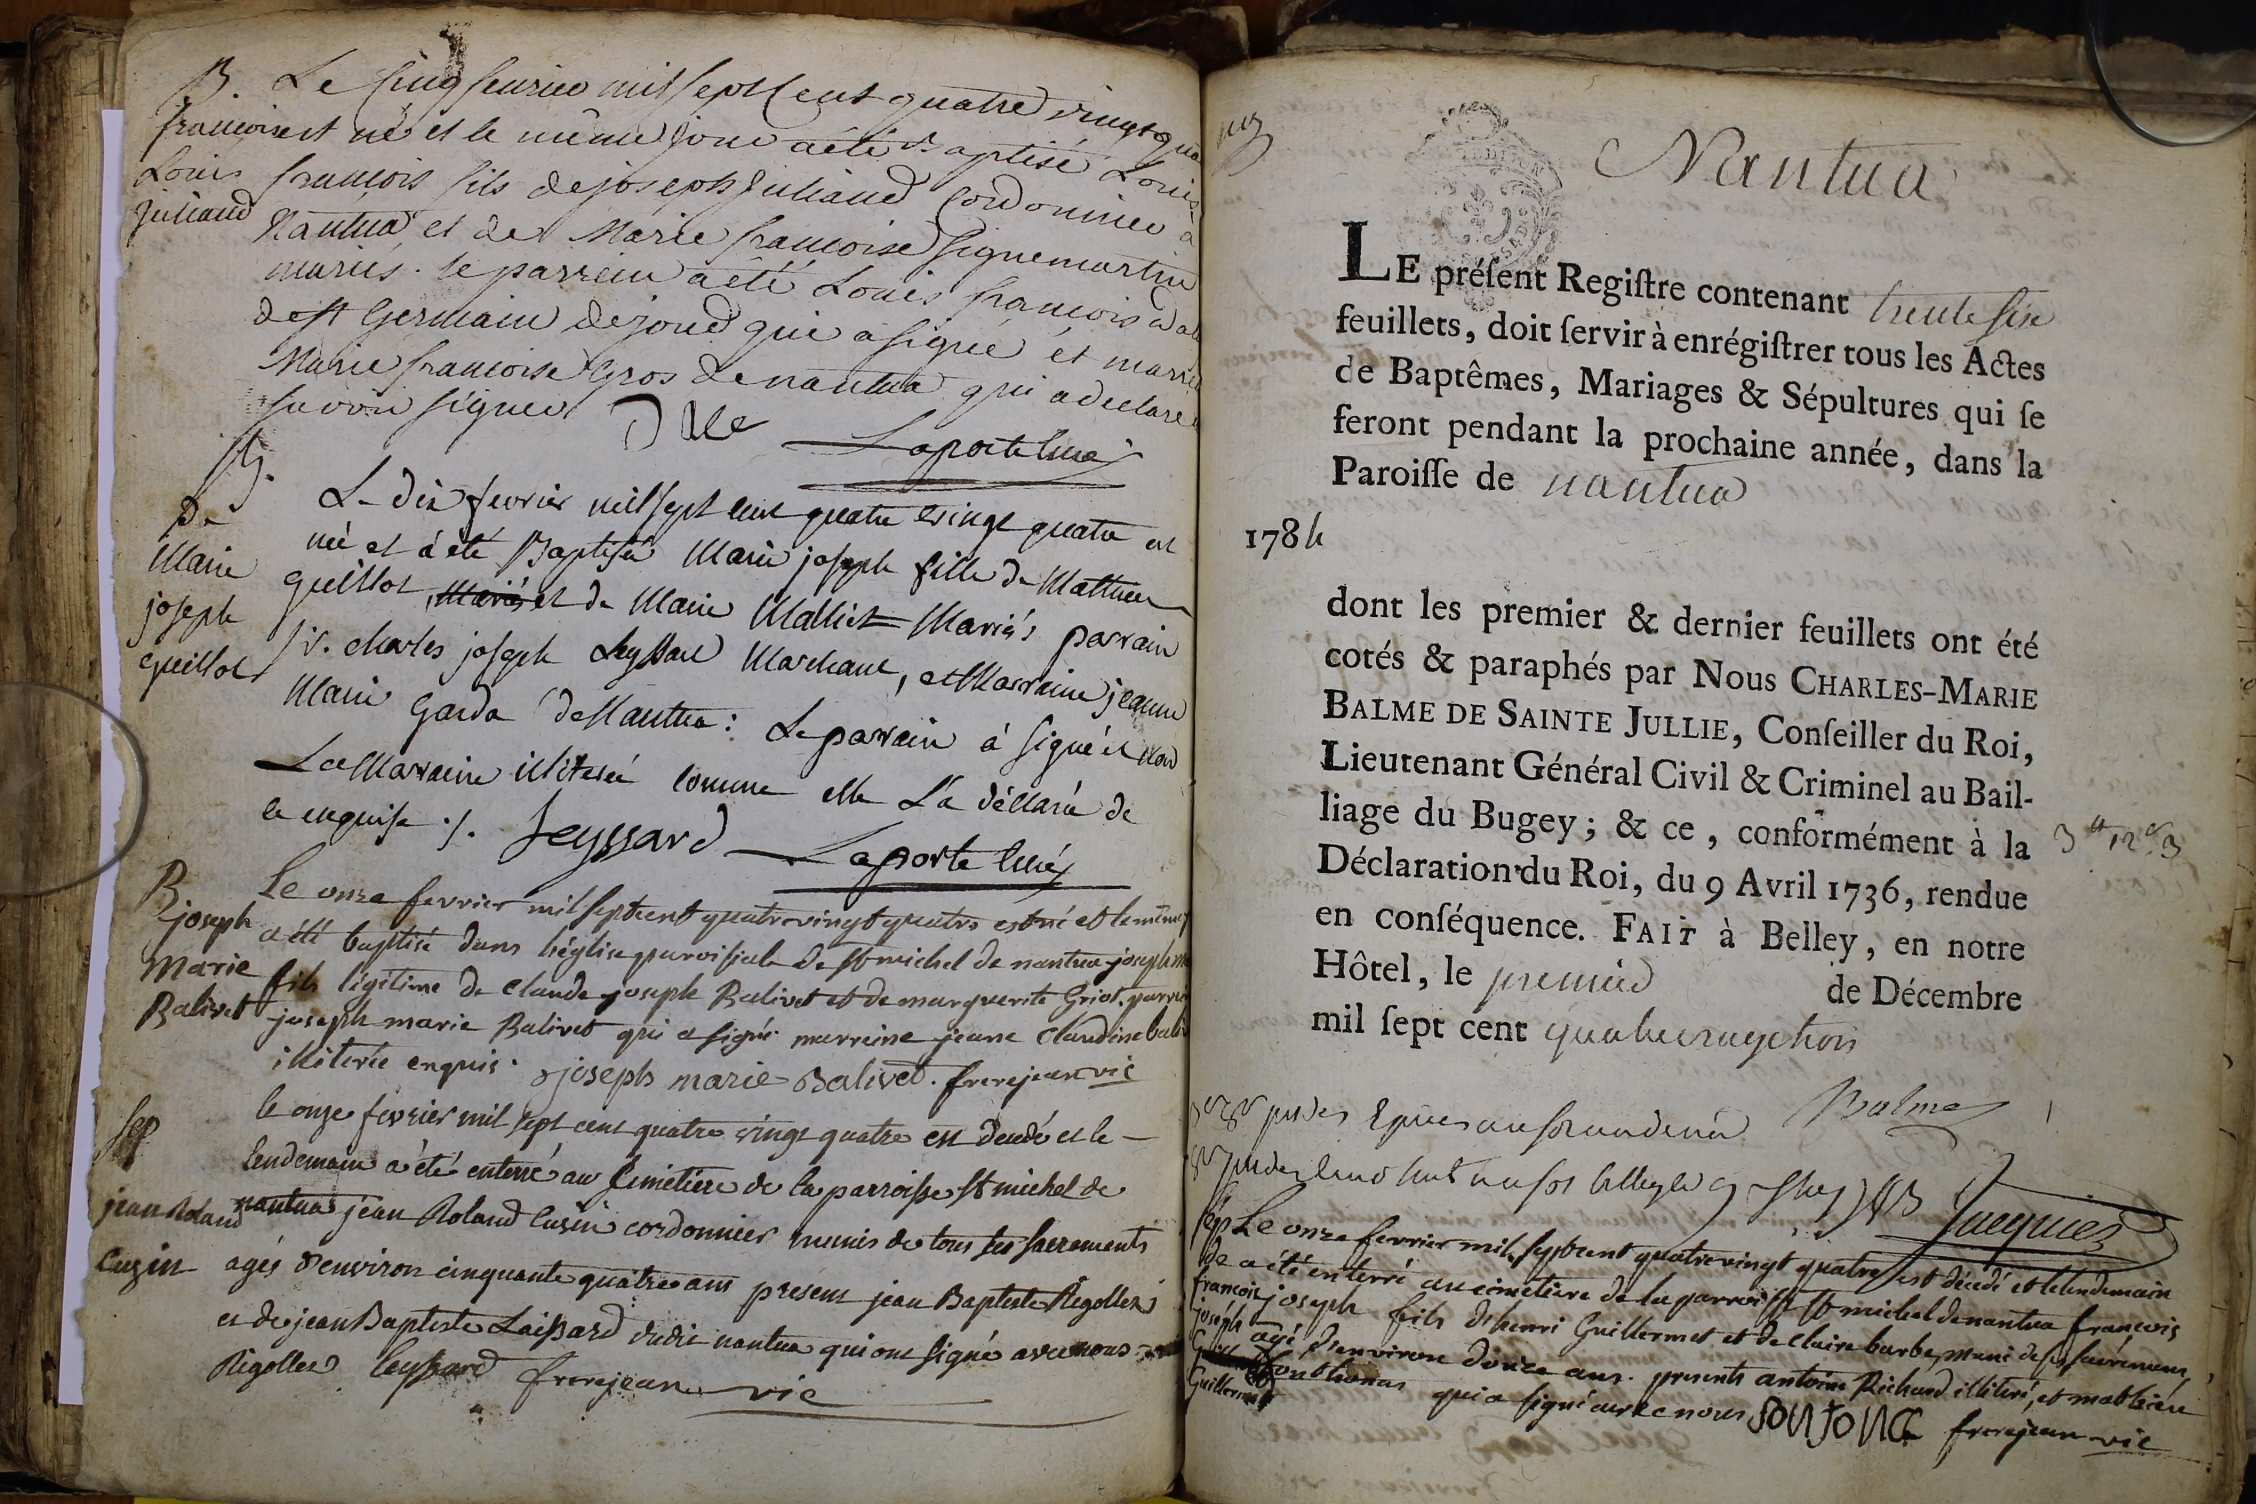 B.
françois
Louis
Juliand
Le cinq fevrier mil sept cent quatre vingt
est né et le même jour a été baptisé Louis
françois fils de joseph Juliand Cordonnier à
Nantua et de Marie françoise
mariés. le parrein a été Louis françois
de st Germain de joud qui a signé et
Marie françoise Gros de nantua qui a declaré
savoir signer
Laporte Curé
B.
De
Marie
joseph
guillot
Le dix fevrier mil sept cent quatre vingt quatre est
née et a été Baptisée Marie joseph fille de Mathieu
guillot, Mariés et de Marie Malliet Mariés parrain
Sr. charles joseph Leyssard Marchant, et Marraine jeanne
Marie Garda de Nantua : Le parrain à signé et non
La Marraine illiterée comme elle L'a déclaré de
ce enquise ./. Leyssard Laporte Curé
B
joseph
Marie
Balivet
Le onze fevrier mil sept cent quatre vingt quatre est né et le même
a été baptisé dans l'église paroissiale de St michel de nantua joseph
fils légitime de claude joseph Balivet et de marguerite Griot. parrein
joseph marie Balivet qui a signé marreine jeane claudine
illiterée enquis. joseph marie Balivet. frerejean vic
Sep
jean Roland
Cuzin
le onze fevrier mil sept cent quatre vingt quatre est decedé et le
lendemain a été enterré au cimetiere de la parroisse st michel de
nantua jean Roland Cusin cordonnier munis de tous ses sacrements
agés d'environ cinquante quatre ans present jean Baptiste Rigollet
et de jean Baptiste Laissard dudit nantua qui ont signé avec nous
Rigollet leyssard frerejean vic
Nantua
LE préſent Regiſtre contenant trente six
feuillets, doit ſervir à enrégiſtrer tous les Actes
de Baptêmes, Mariages & Sépultures qui ſe
feront pendant la prochaine année, dans la
Paroiſſe de nantua
1784
dont les premier & dernier feuillets ont été
cotés & paraphés par Nous CHARLES-MARIE
BALME DE SAINTE JULLIE, Conſeiller du Roi,
Lieutenant Général Civil & Criminel au Bail-
liage du Bugey ; & ce, conformément à la
Déclaration du Roi, du 9 Avril 1736, rendue
en conſéquence. FAIT à Belley, en notre
Hôtel, le premier de Décembre
mil ſept cent quatrevingt trois
Balme
Jacquier
Sep
De
francois
joseph
Guillermet
Le onze fevrier mil sept cent quatre vingt quatre est décedé et le lendemain
a été enterré au cimetiere de la parroisse St michel de nantua françois
joseph fils d'henri Guillermet et de claire barbe, muni de ses sacremens,
agé d'environ douze ans. presents antoine Richard illiteré, et mathieu
qui a signé avec nous frerejean vic